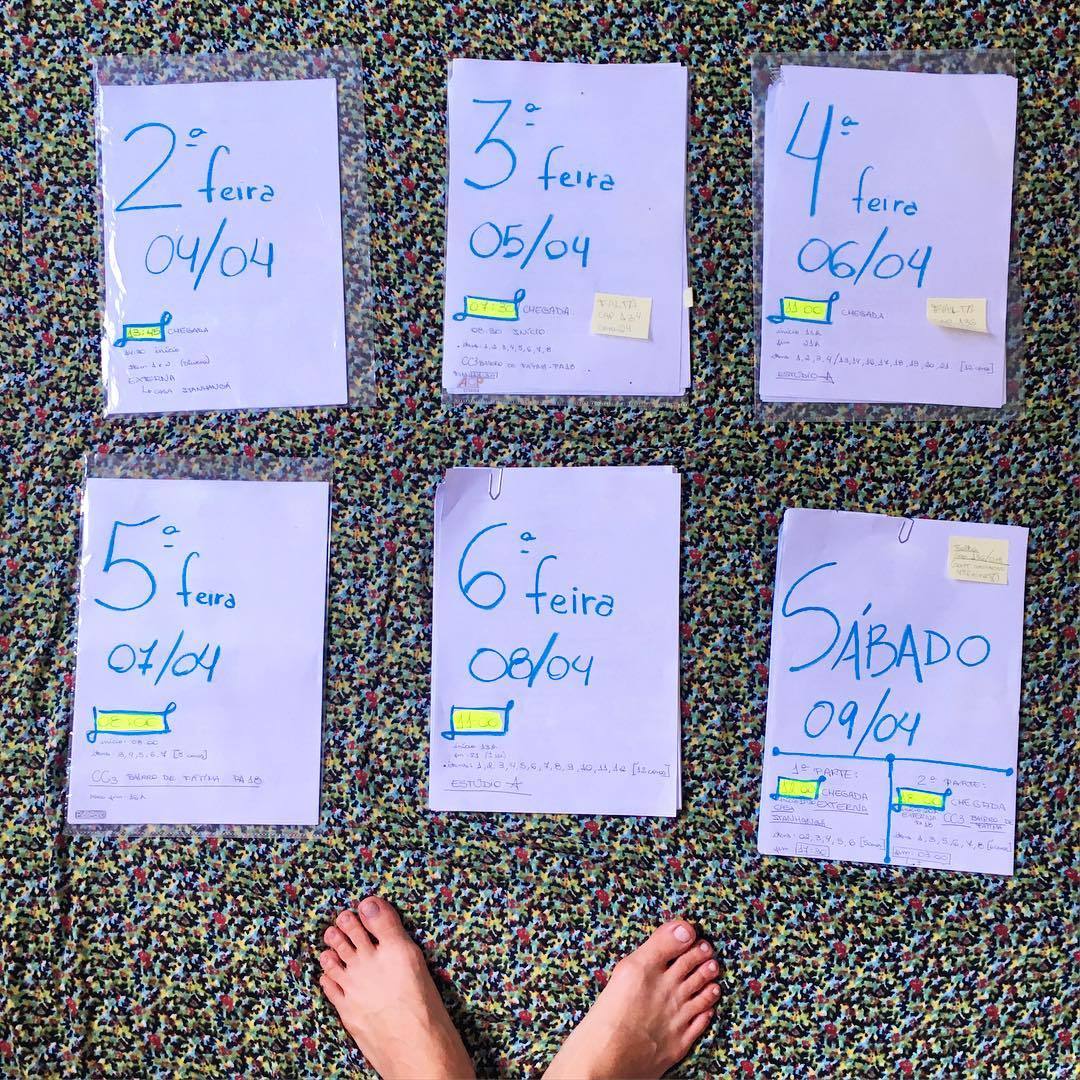 2ª feira
04/04
13:45 CHEGADA
14:30 início
EXTERNA
ITANHANGÁ
3ª feira
05/04
07:30 CHEGADA
08:30 INÍCIO
itens: 1, 2, 3, 4, 5, 6, 7, 8
CC3 BAIRRO DE FÁTIMA - PA18
FALTA
CAP 134
4ª feira
06/04
11:00 CHEGADA
início 13h
fim 21h
itens: 1, 2, 3, 4 / 13, 14, 16, 17, 18, 19, 20, 21 [12 cenas]
ESTÚDIO A
FALTA
136
5ª feira
07/04
08:00
início: 09:00
itens: 3, 4, 5, 6, 7 [5 cenas]
CC3 BAIRRO DE FÁTIMA PA18
6ª feira
08/04
11:00
início 13h
fim 21
itens: 1, 2, 3, 4, 5, 6, 7, 8, 9, 10, 11, 12 [12 cenas]
ESTÚDIO A
SÁBADO
09/04
1ª PARTE:
CHEGADA
EXTERNA
CASA
ITANHANGÁ
itens: 02, 3, 4, 5, 6 [5 cenas]
fim 17:30
2ª PARTE:
CHEGADA
EXTERNA CC3 BAIRRO DE
PA18 FÁTIMA
itens: 1, 3, 5, 6, 7, 8 [6 cenas]